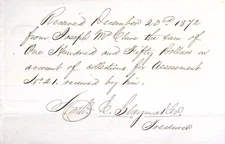 Received December 23rd 1872
from Joseph Mc Clure the sum of
One Hundred and Fifty Dollars on
account of collections for Assessment
No 21. received by him.
Treasurer